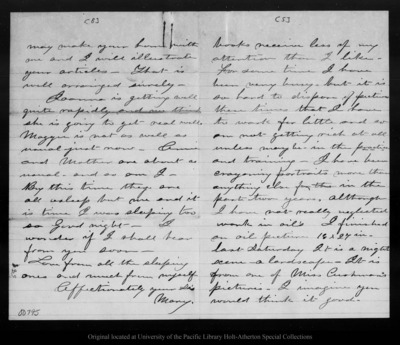 C53
may make your home with
me and I will illustrate
your articles - That is
well arranged surely -
Joanna is getting well
quite rapidly and we think
she is going to get real well
Maggie is not as well as
usual just now - Annie
and Mother are about as
usual - and so am I -
By this time they are
all asleep but me and it
is time I was sleeping too
so Good night - I
wonder if I shall hear
from you soon -
Love from all the sleeping
ones and much from myself
Affectionately your Sis
Mary.
00945
C53
works receive less of my
attention than I like -
For some time I have
been very busy - but it is
so hard to dispose of pictures
these times that I have
to work for little and so
am not getting rich at all
unless maybe in the practice
and training - I have been
crayoning portraits more than
anything else for the
past two years. Although
I have not really neglected
work in oils I finished
an oil picture 18 x 27 in.
last Saturday It is a night
scene - a landscape - It is
from one of Miss Cushman's
pictures - I imagine you
would think it good.
Original located at University of the Pacific Library Holt-Atherton Special Collections